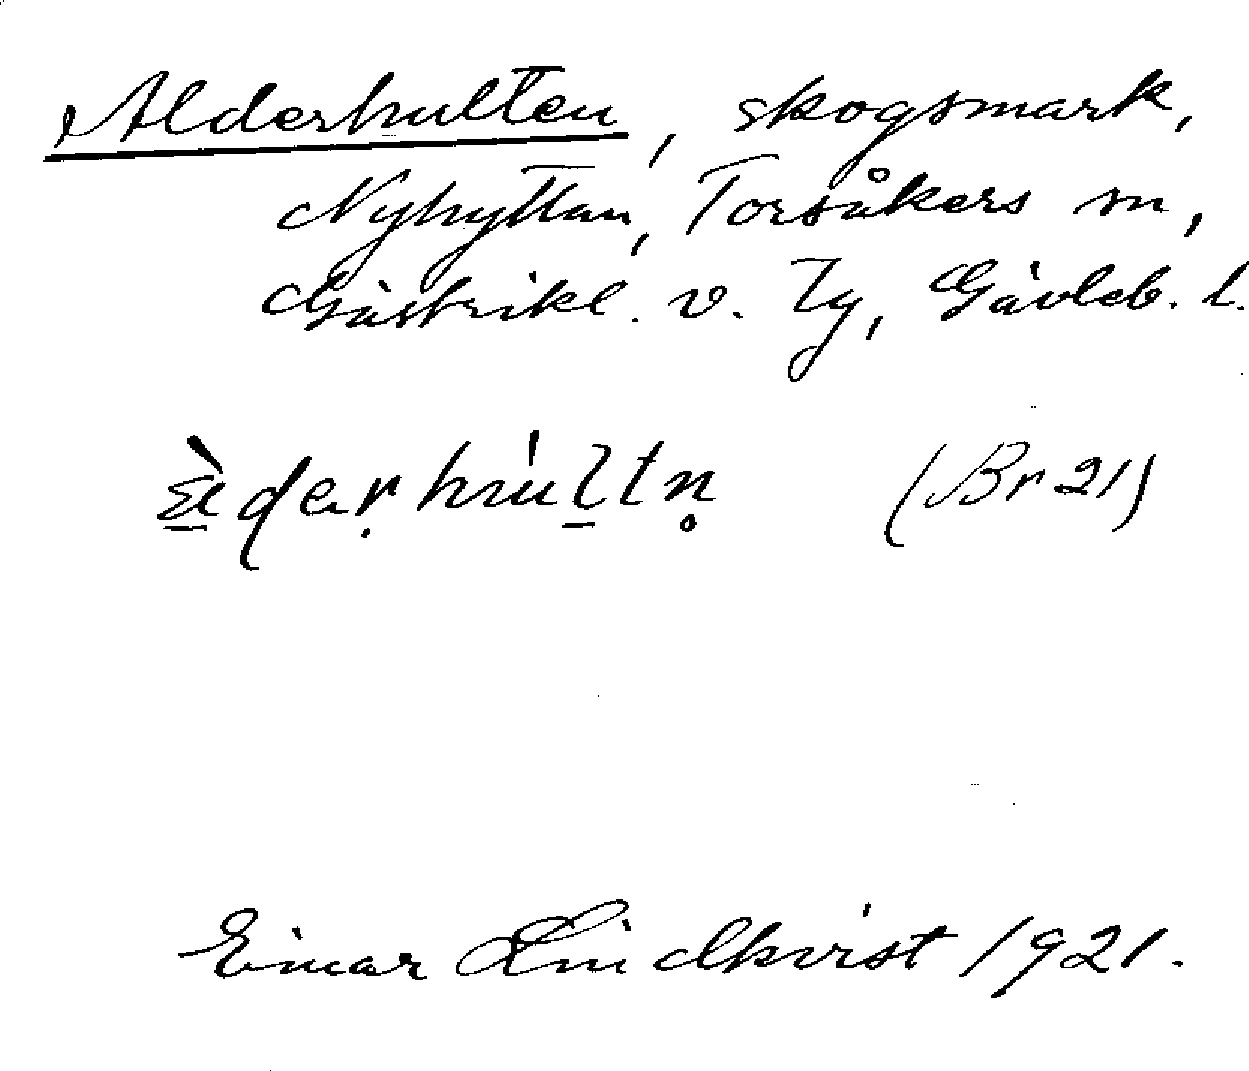 Alderhulten, skogsmark,
Nyhyttan, Torsåkers sn,
Gästrikl. v. Tg, Gävleb. l.
(Br 21)
Einar Lindkvist 1921.